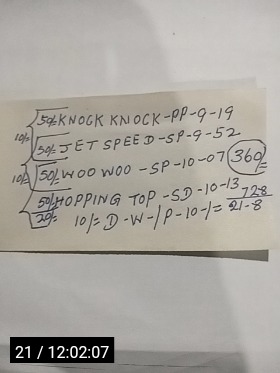 50/- KNOCK KNOCK-PP-9-19
10/-
50/- JET SPEED-SP-9-52
10/- 50/- WOO WOO -SP-10-07 360/-
50/- HOPPING TOP -SD-10-13
20/- 10/- D-W-/P-10-/=
728
21-8
21 / 12:02:07